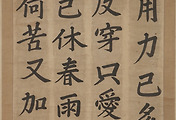 用力已多
反穿只愛
己休春雨
何苦又加